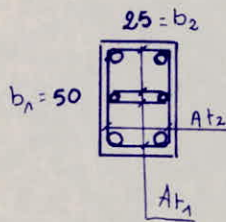 25 = b₂
b₁ = 50
At₂
At₁